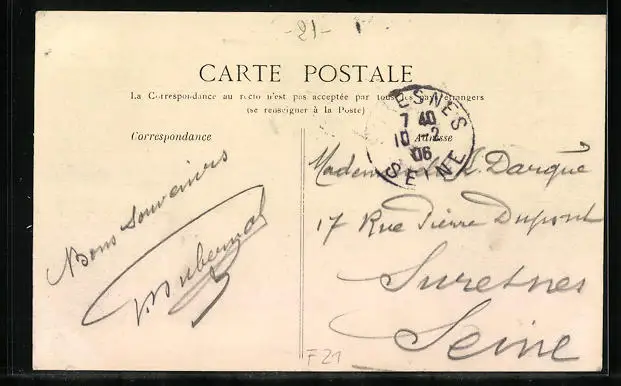 -21-
CARTE POSTALE
La Correspondance au recto n'est pas acceptée par tous les pays étrangers
(se renseigner à la Poste)
Correspondance
Adresse
ESNES
7 40
10 -2
06
SEINE
Bons Souvenirs
Mademoiselle L. Darqué
17 Rue Pierre Dupont
Suresnes
Seine
F21